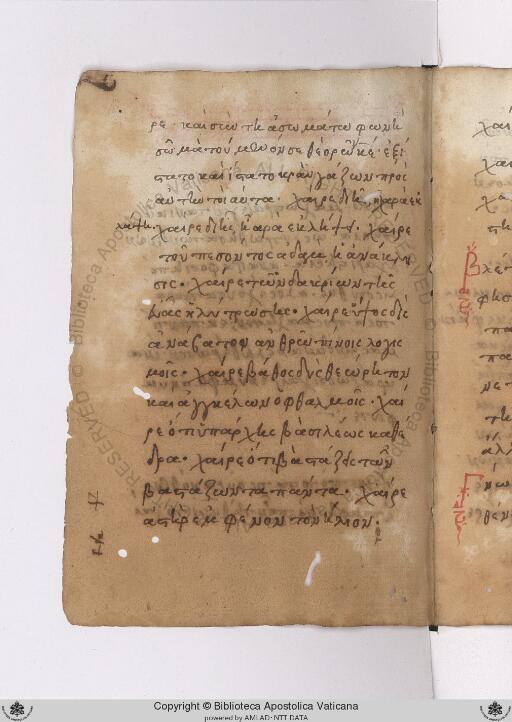 ρε· καὶ σὺν τῆ ἀσωμάτω φωνῆ
σωματούμενόν σε θεορῶν κε· ἐξί
στατο καὶ ἵστατο κραυγάζων πρὸς
αὐτὴν τοιαύτα· χαῖρε δι ἧς ἡ χαρὰ ἐκ
λαμψη· χαῖρε δι ἧς ἡ ἀρὰ ἐκλήψη· χαῖρε
τοῦ πεσόντος ἀδὰμ ἡ ἀνάκλη
σις· χαῖρε τῶν δακρίων τῆς
εὔας ἡ λύτρωσης· χαῖρε ὕψος δυσ
ἀνάβατον ἀνθρωπίνοις λογισ
μοῖς· χαῖρε βάθος δυσθεώρητον
καὶ ἀγγέλων ὀφθαλμοῖς· χαί
ρε ὅτι ὑπάρχης βασιλέως καθε
δρα· χαῖρε ὅτι βαστάζεις τὸν
βαστάζωντα πάντα· χαῖρε
ἀστὴρ ἐμφένον τὸν ἥλιον·
χαί
χαί
Copyright © Biblioteca Apostolica Vaticana
powered by AMLAD · NTT DATA